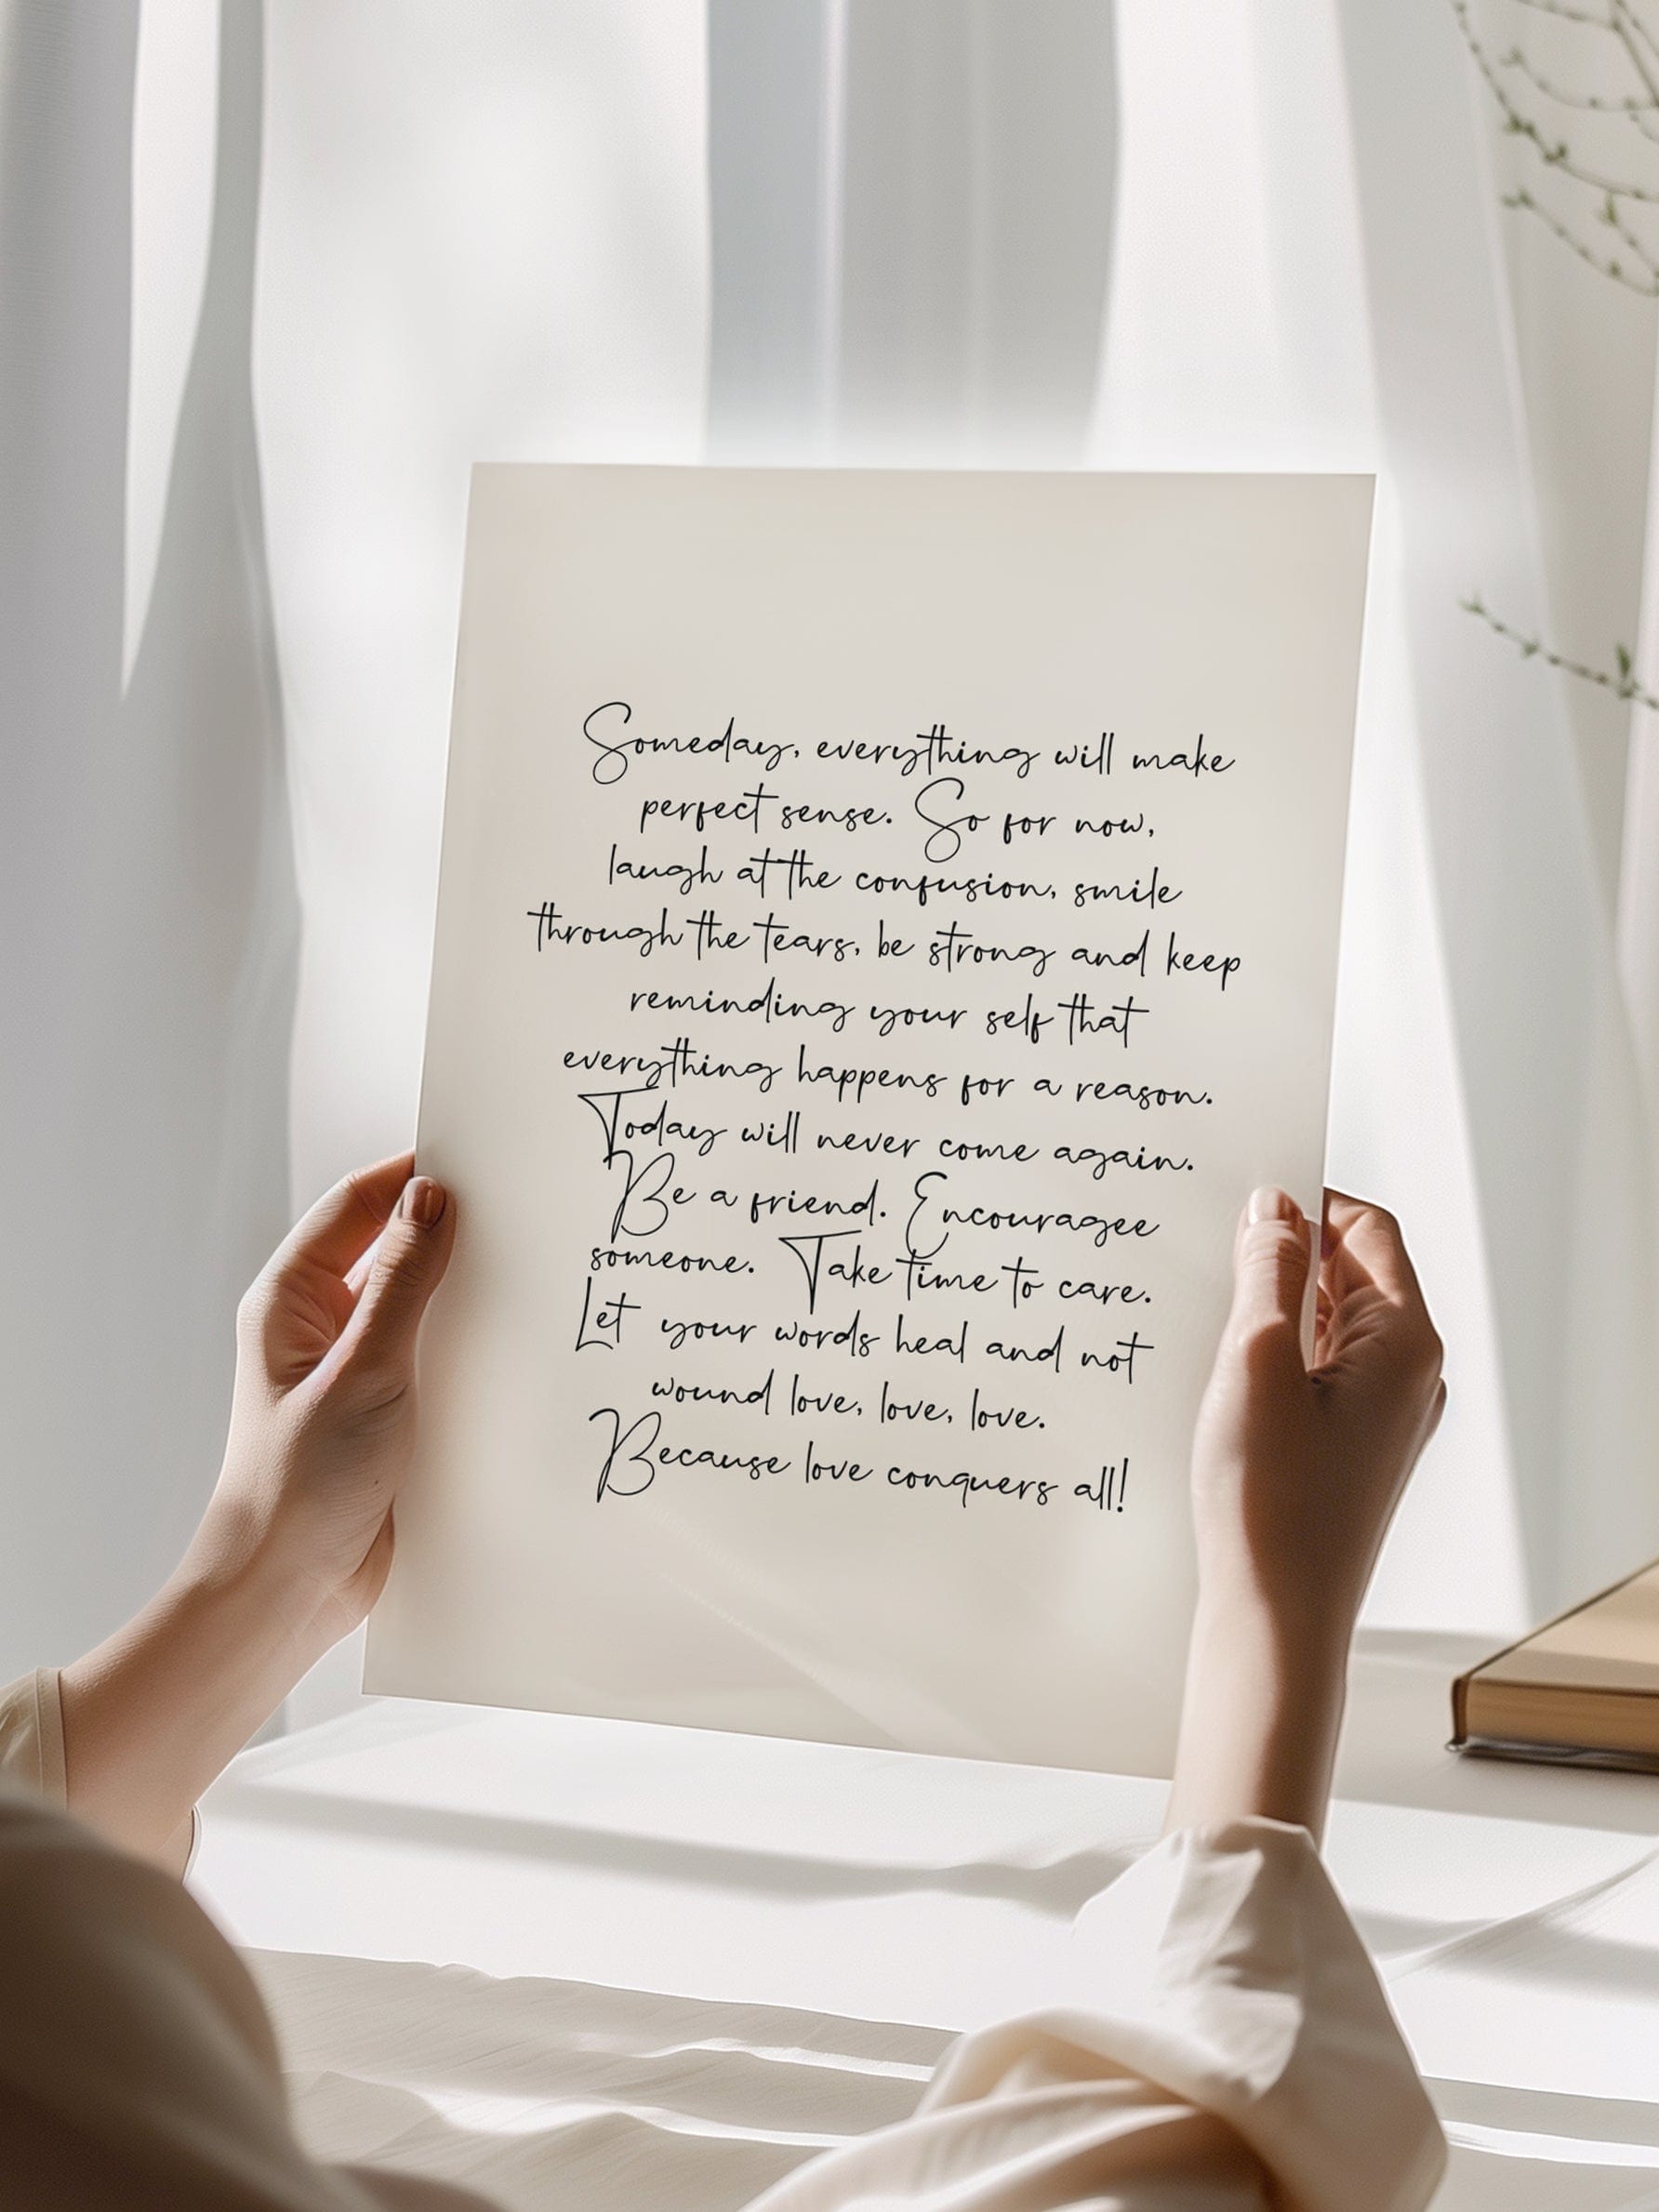 Someday, everything will make
perfect sense. So for now,
laugh at the confusion, smile
through the tears, be strong and keep
reminding your self that
everything happens for a reason.
Today will never come again.
Be a friend. Encouragee
someone. Take time to care.
Let your words heal and not
wound love, love, love.
Because love conquers all!